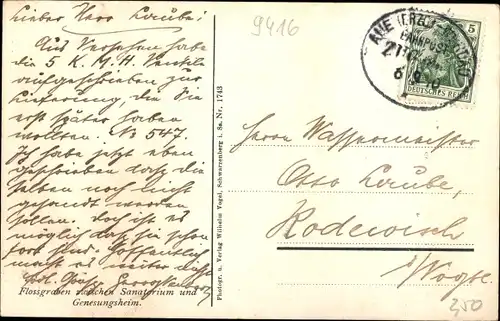 Lieber Herr Laube!
Aus Versehen habe
die 5 K.M.H. Ventile
aufgeschrieben zur
Lieferung, die Sie
erst später haben
wollten. No 547.
Ich habe jetzt eben
geschrieben daß die
selben noch nicht
gesandt werden
sollen. Doch ist es
möglich daß sie schon
fort sind. Hoffentlich
macht es weiter
Flossgraben zwischen Sanatorium und
Genesungsheim.
Photogr. u. Verlag Wilhelm Vogel, Schwarzenberg i. Sa. Nr. 1743
9416
AUE (ERZGEB.)
BAHNPOST
5
DEUTSCHES REICH
Herrn Wassermeister
Otto Laube,
Rodewisch
i/Vogtl.
2,50